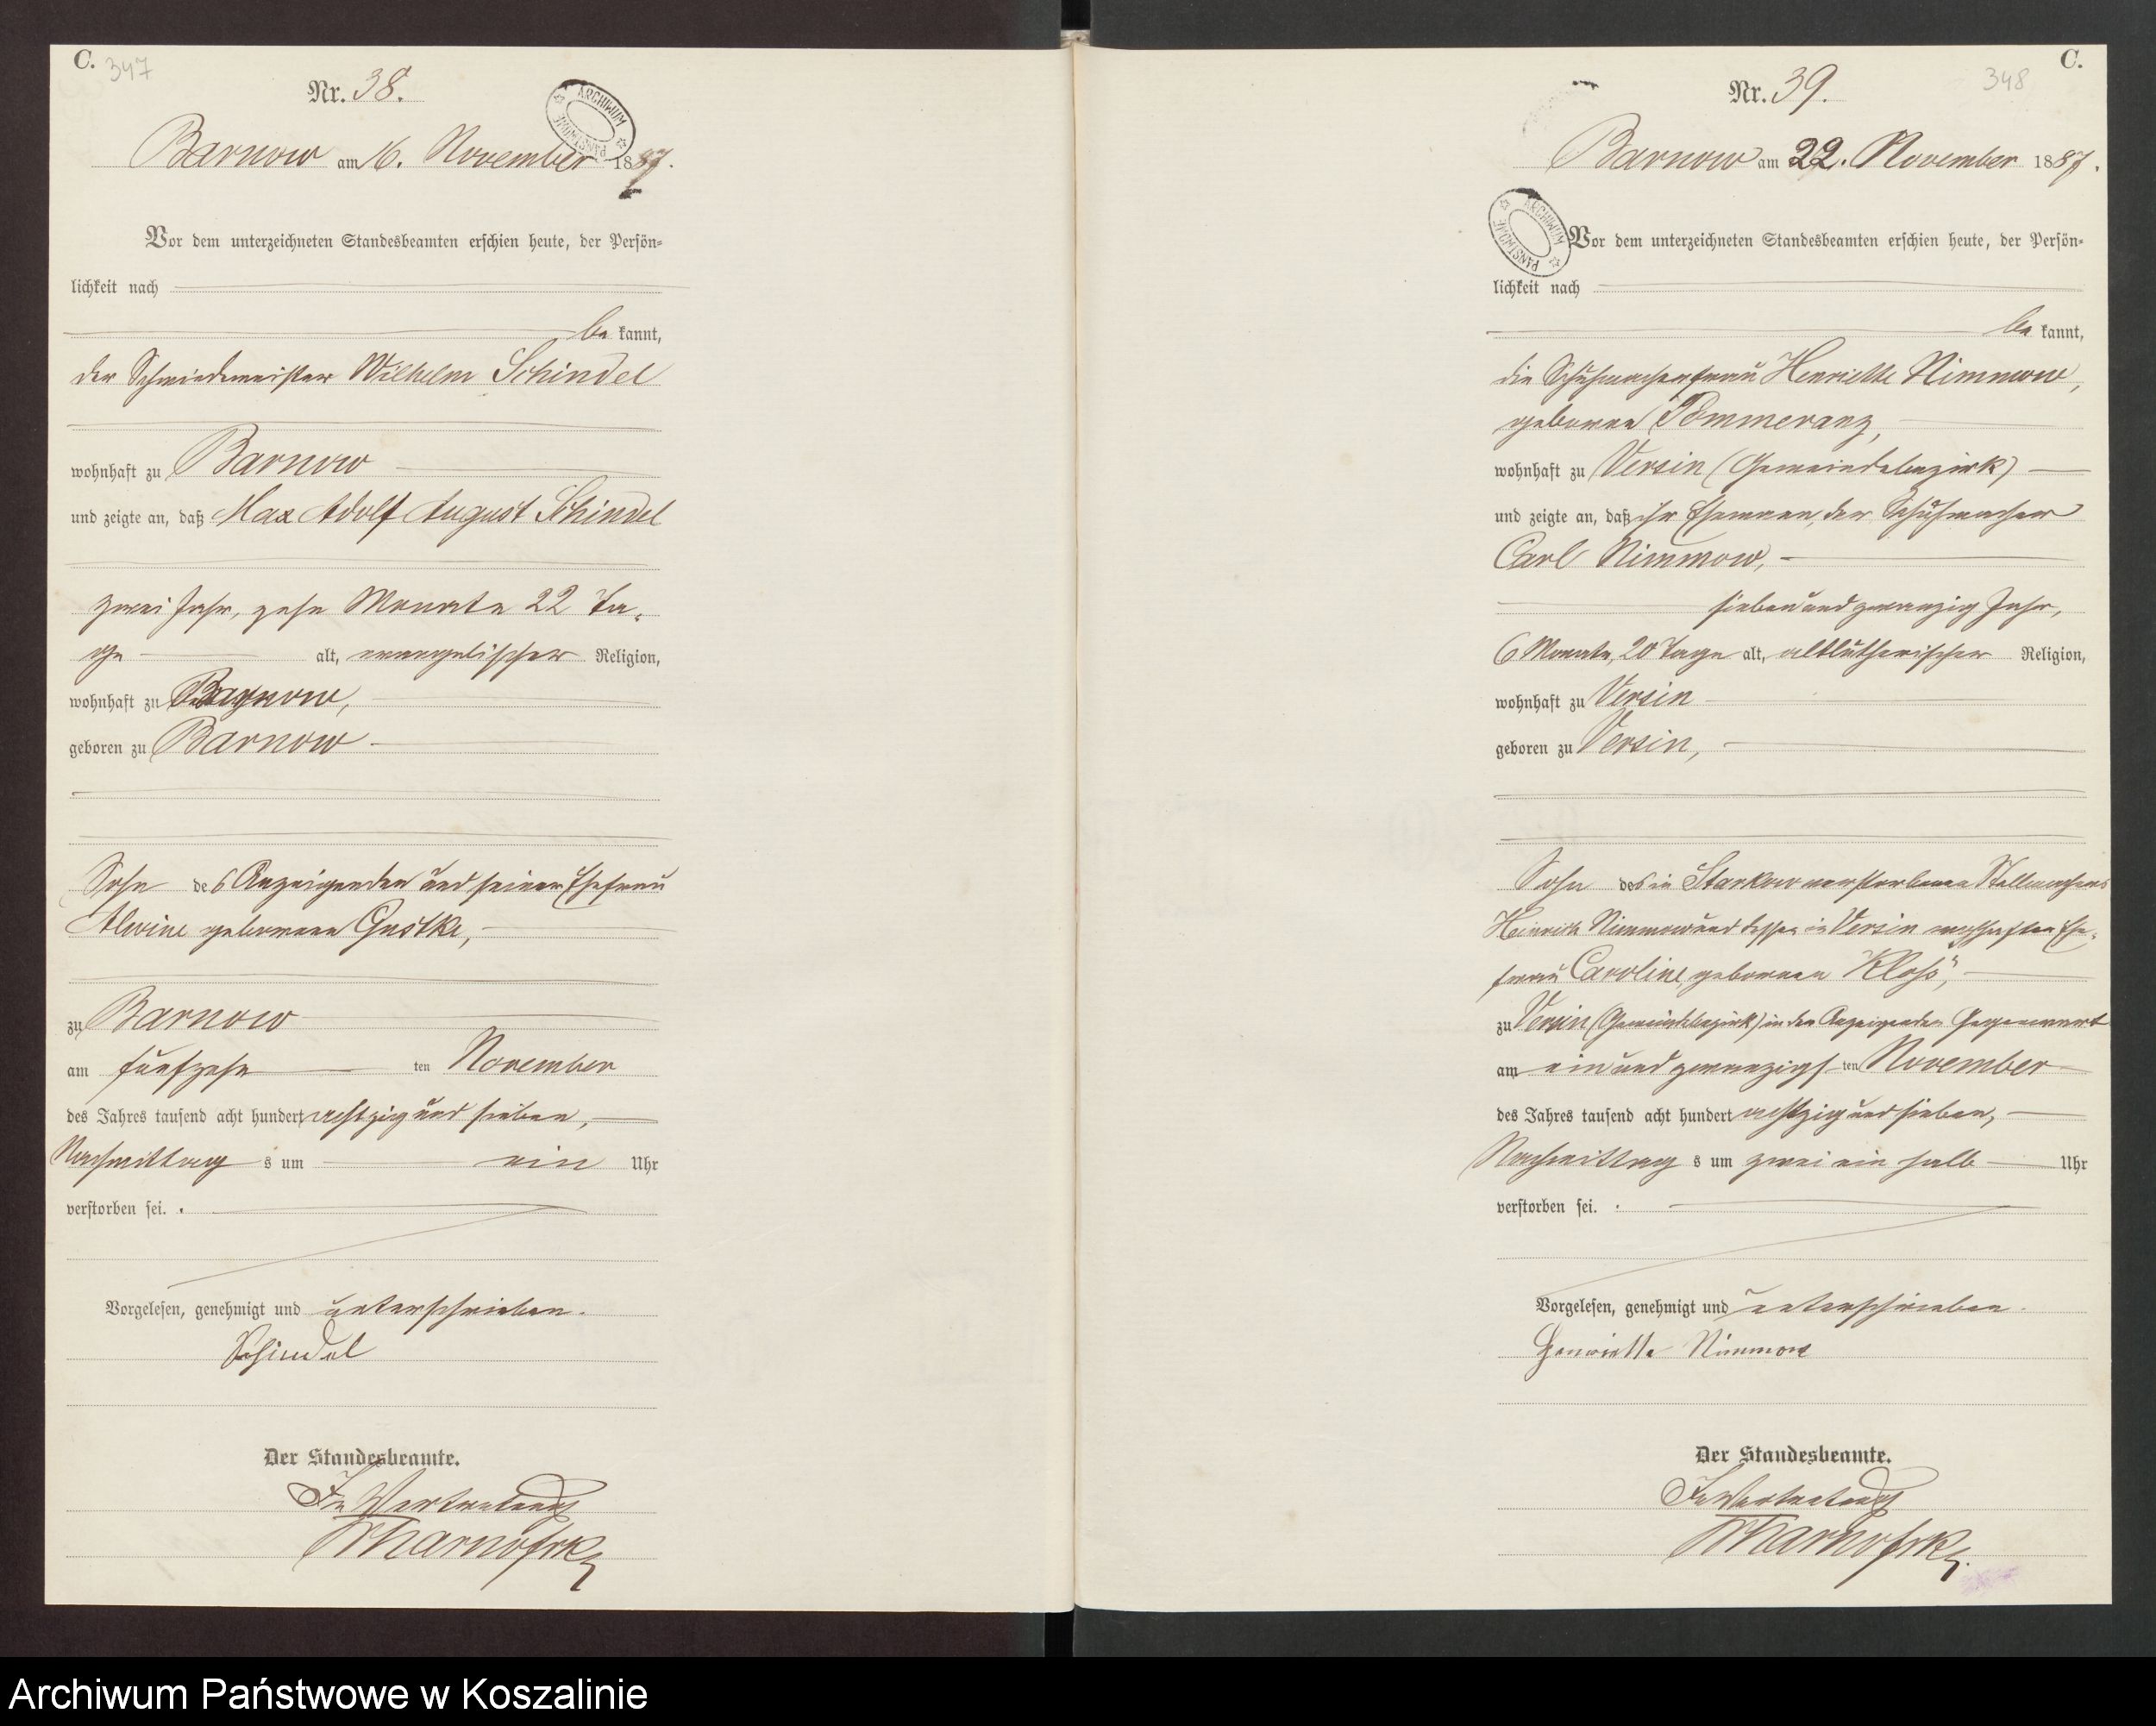 C. 347
Nr. 38.
ARCHIWUM PAŃSTWOWE
Barnow am 16. November 1887.
Vor dem unterzeichneten Standesbeamten erschien heute, der Persön-
lichkeit nach
be kannt,
der Schmiedemeister Wilhelm Schindel
wohnhaft zu Barnow
und zeigte an, daß Max Adolf August Schindel
zwei Jahr, zehn Monate 22 Ta-
ge alt, evangelischer Religion,
wohnhaft zu Barnow,
geboren zu Barnow
Sohn des Anzeigenden und seiner Ehefrau
Alwine geborenen Gustke,
zu Barnow
am fünfzehn ten November
des Jahres tausend acht hundert achtzig und sieben,
Nachmittag s um ein Uhr
verstorben sei.
Vorgelesen, genehmigt und unterschrieben.
Schindel
Der Standesbeamte.
In Vertretung
C.
348
Nr. 39.
Barnow am 22. November 1887.
ARCHIWUM PAŃSTWOWE
Vor dem unterzeichneten Standesbeamten erschien heute, der Persön-
lichkeit nach
be kannt,
die Schuhmacherfrau Henriette Nimmow,
geborene Pommeranz,
wohnhaft zu Versin (Gemeindebezirk)
und zeigte an, daß ihr Ehemann, der Schuhmacher
Carl Nimmow,
sieben und zwanzig Jahr,
6 Monate, 20 Tage alt, altlutherischer Religion,
wohnhaft zu Versin
geboren zu Versin,
Sohn des in Starkow verstorbenen Stellmachers
Heinrich Nimmow und dessen in Versin wohnhaften Ehe-
frau Caroline, geborenen Kloß,
zu Versin (Gemeindebezirk) in der Anzeigenden Gegenwart
am ein und zwanzigs ten November
des Jahres tausend acht hundert achtzig und sieben,
Nachmittag s um zwei ein halb Uhr
verstorben sei.
Vorgelesen, genehmigt und unterschrieben.
Henriette Nimmow
Der Standesbeamte.
In Vertretung
Archiwum Państwowe w Koszalinie